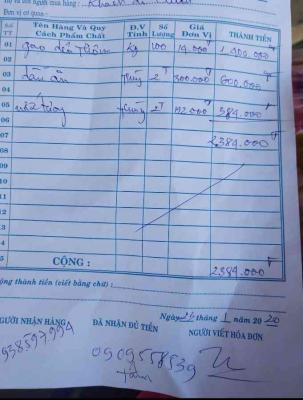 Họ và tên người mua hàng : Khách
Đơn vị cơ quan :
SỐ TT Tên Hàng Và Quy Cách Phẩm Chất Đ.V Tính Số Lượng Giá Đơn Vị THÀNH TIỀN
01 gạo kg 100 14.000
02
03 dầu ăn thùng 2T 300.000đ 600.000đ
04
05 thùng 2T 192.000 384.000đ
06
07 2.384.000đ
08
09
10
CỘNG : 2384.000đ
Cộng thành tiền (viết bằng chữ) :
Ngày 26 tháng 1 năm 2020
NGƯỜI NHẬN HÀNG ĐÃ NHẬN ĐỦ TIỀN NGƯỜI VIẾT HÓA ĐƠN
938597994
0909558539
Tâm